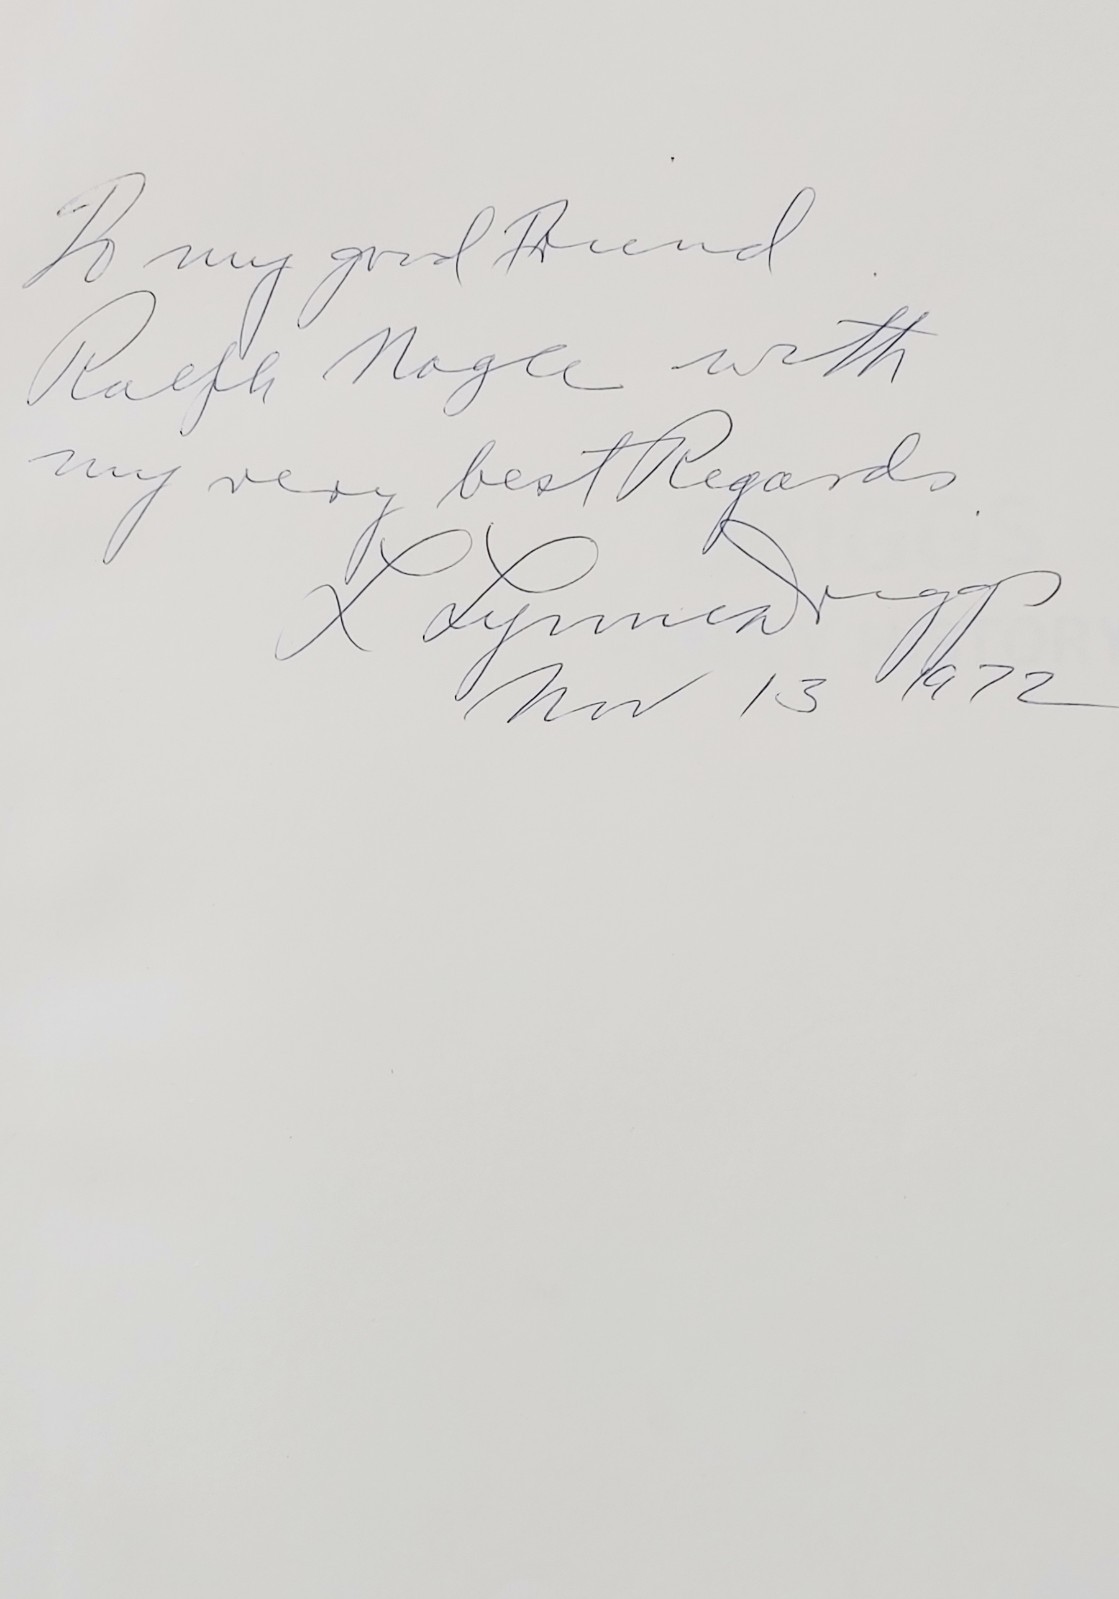 To my good Friend
Ralph Nagle with
my very best Regards.
L Lynnea Driggs
Nov 13 1972